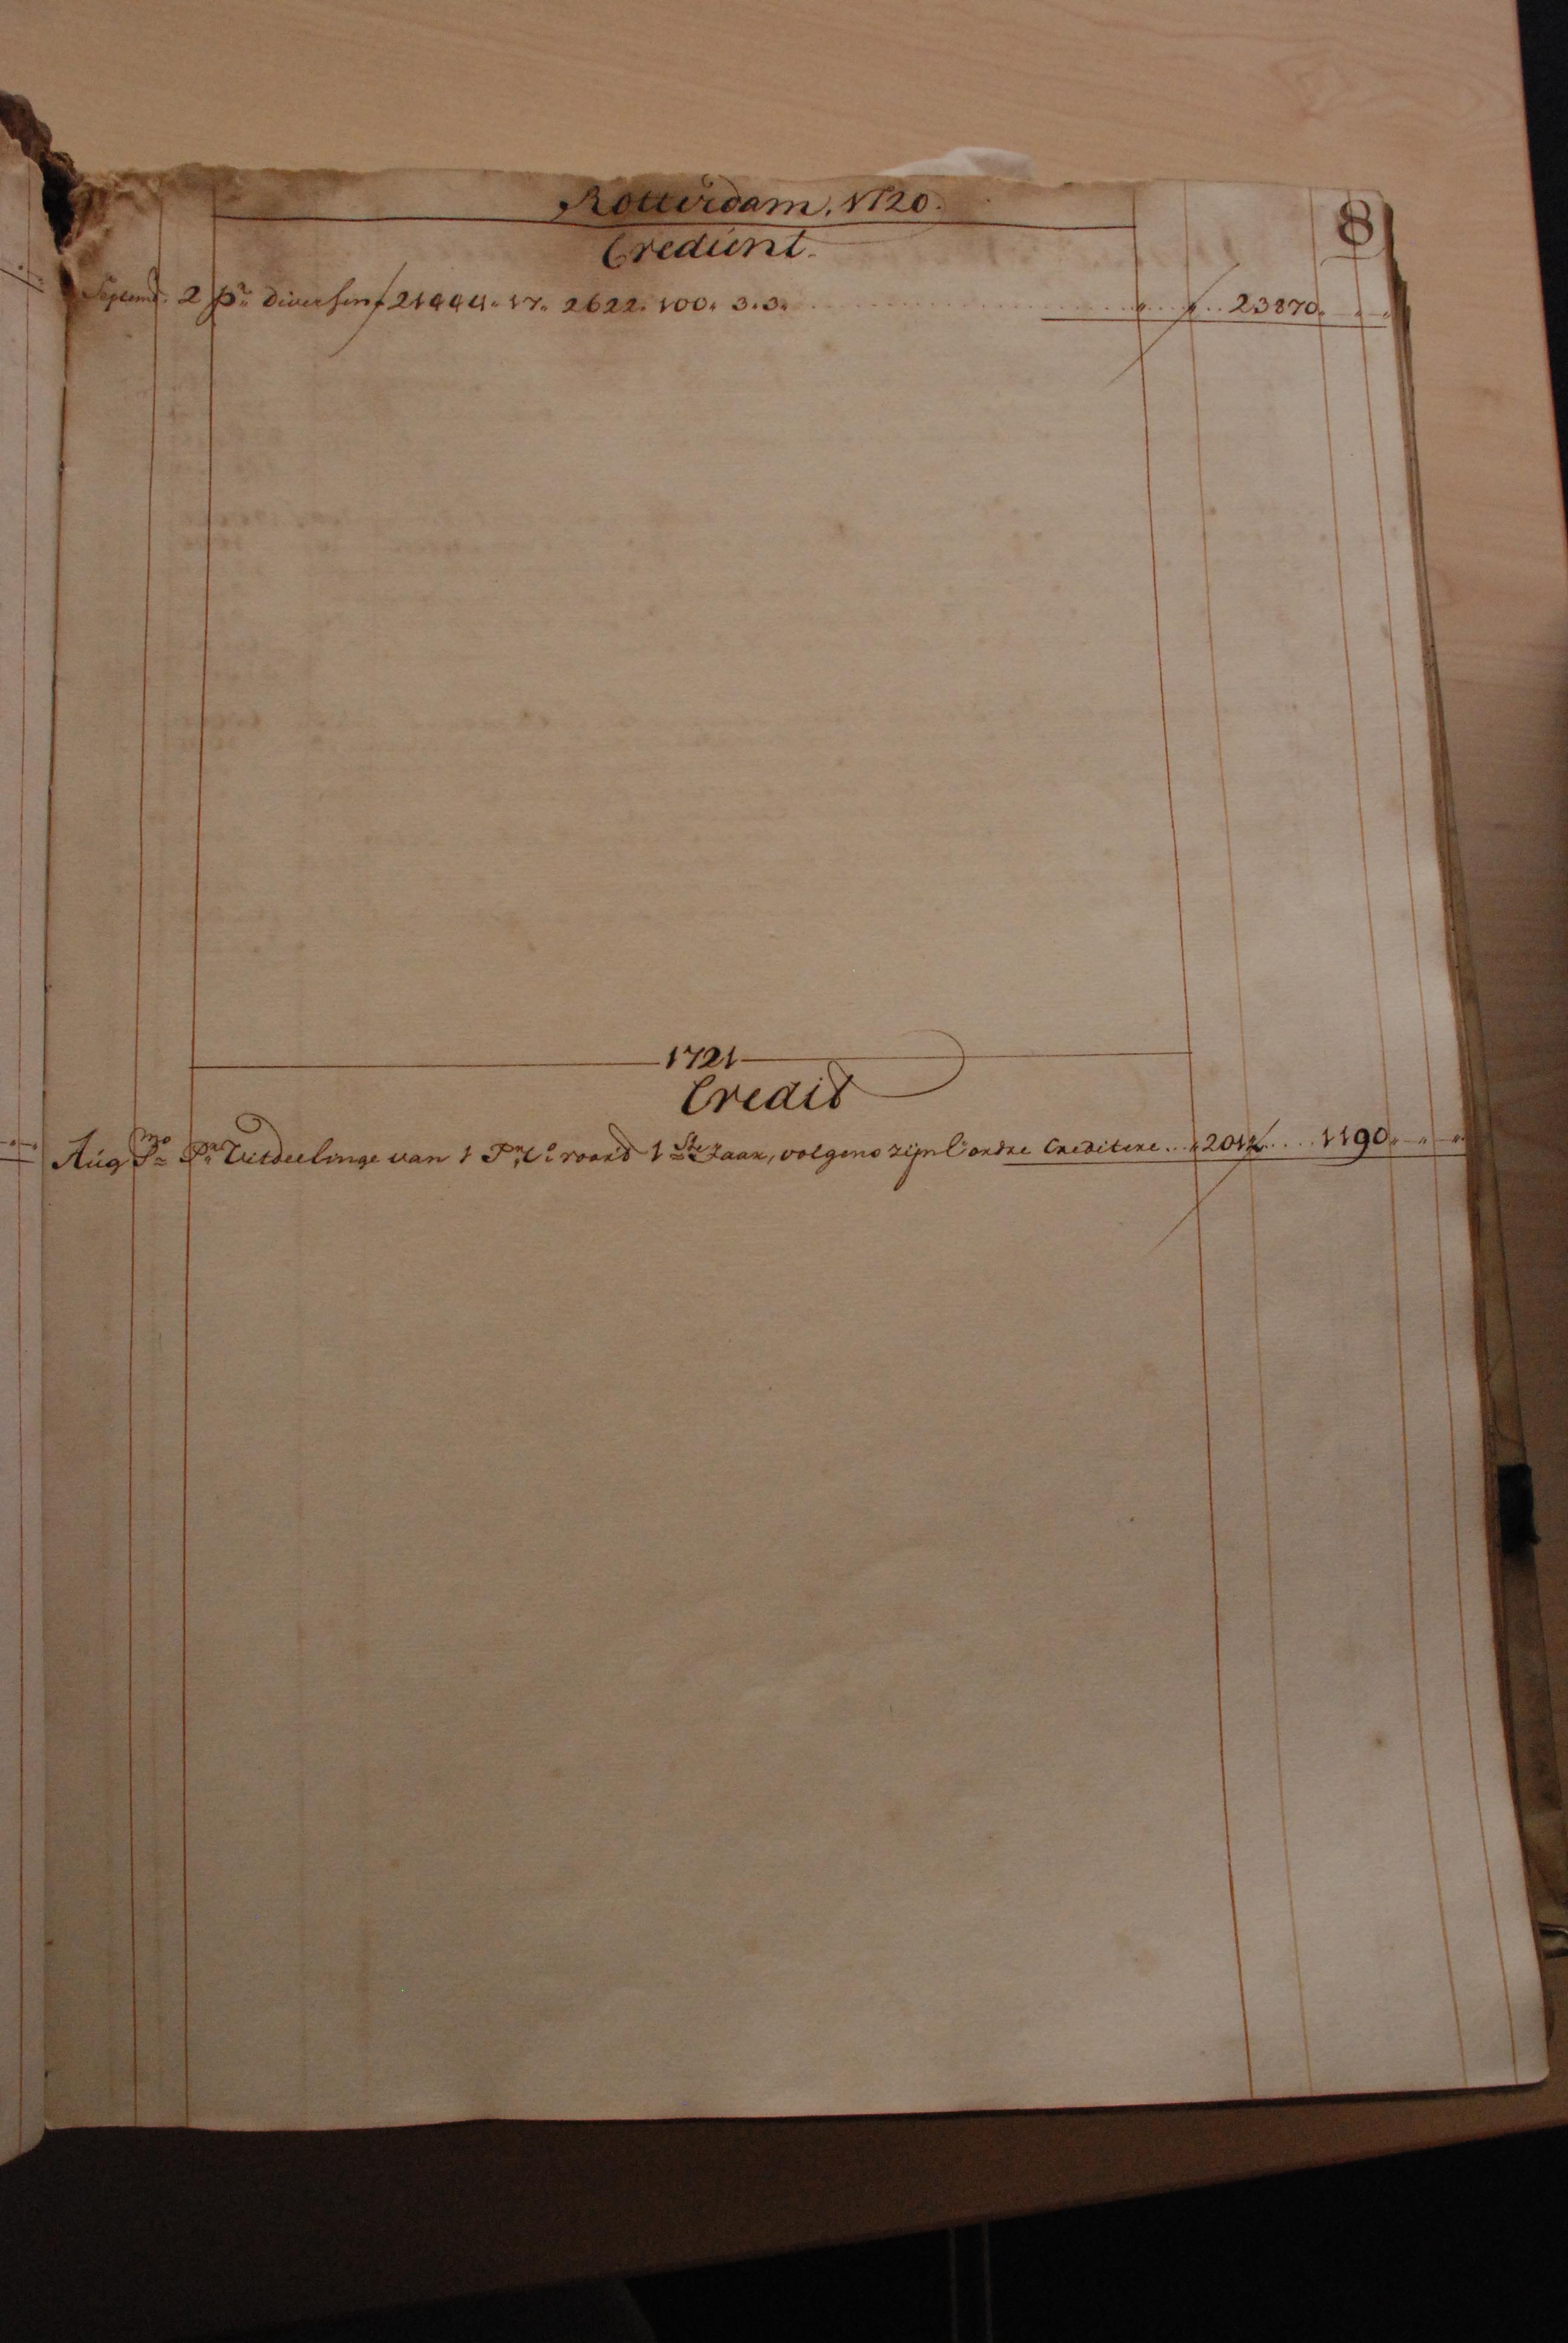 Rotterdam. 1720.
8
Credunt.
Septemb. 2 pr. diversen f 21444. 17. 2622. 100. 3.3. 23870
1721
Credit
Aug Pmo Pr. Uitdeelinge van 1 Pr. Co 1ste zaak, volgens zijn ordre Crediteere 201 1190